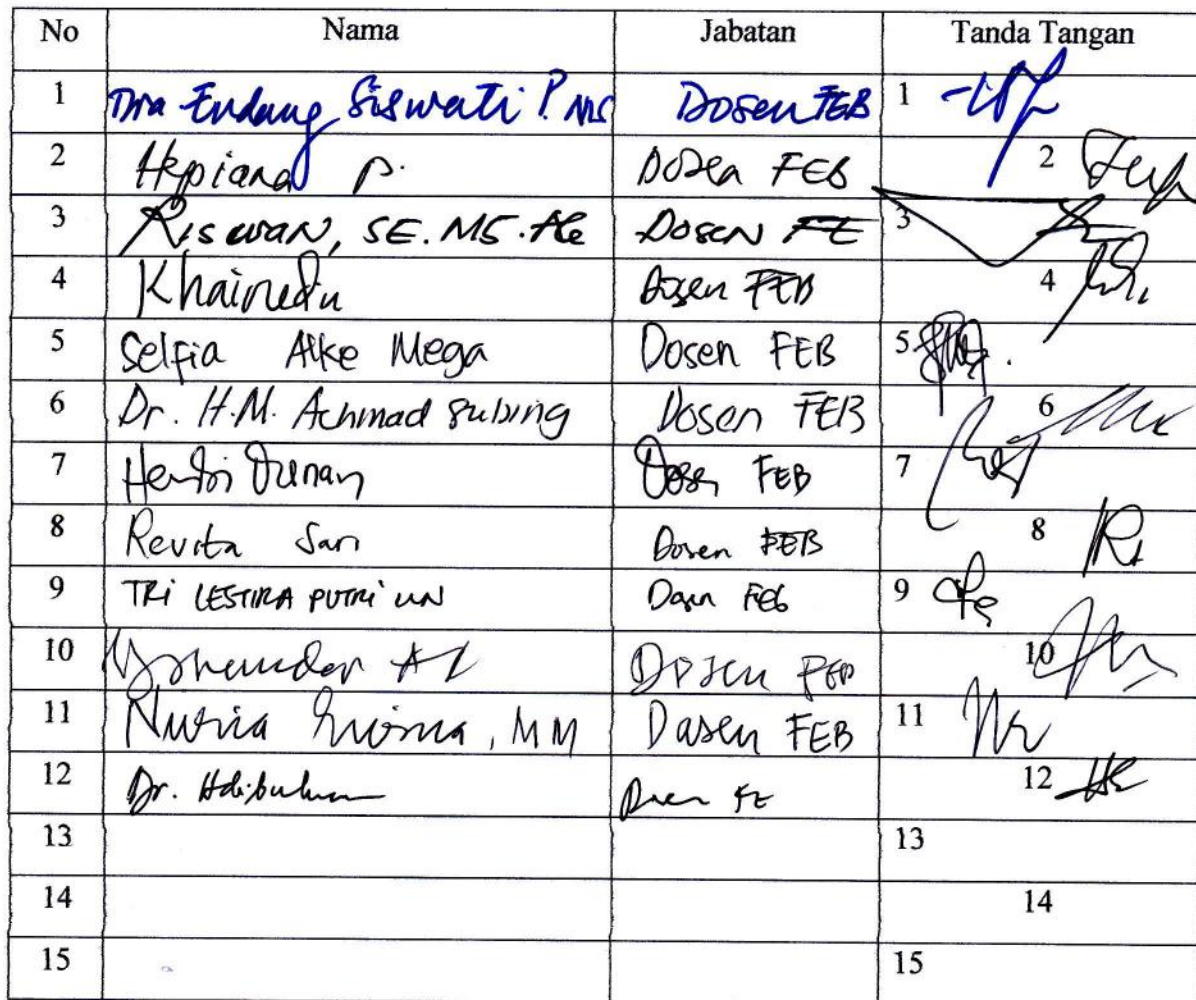 No Nama Jabatan Tanda Tangan
1 Dra Endang Siswati P. MS Dosen FEB 1
2 Hepiana P. Dosen FEB 2
3 Riswan, SE. MS. Ak Dosen FE 3
4 Khairudin Dosen FEB 4
5 Selfia Alke Mega Dosen FEB 5
6 Dr. H.M. Achmad Subing Dosen FEB 6
7 Hendri Dunan Dosen FEB 7
8 Revita Sari Dosen FEB 8
9 TRI LESTIRA PUTRI Dosen FEB 9
10 Dosen FEB 10
11 Nuria , MM Dosen FEB 11
12 Dr. Dosen FE 12
13 13
14 14
15 15